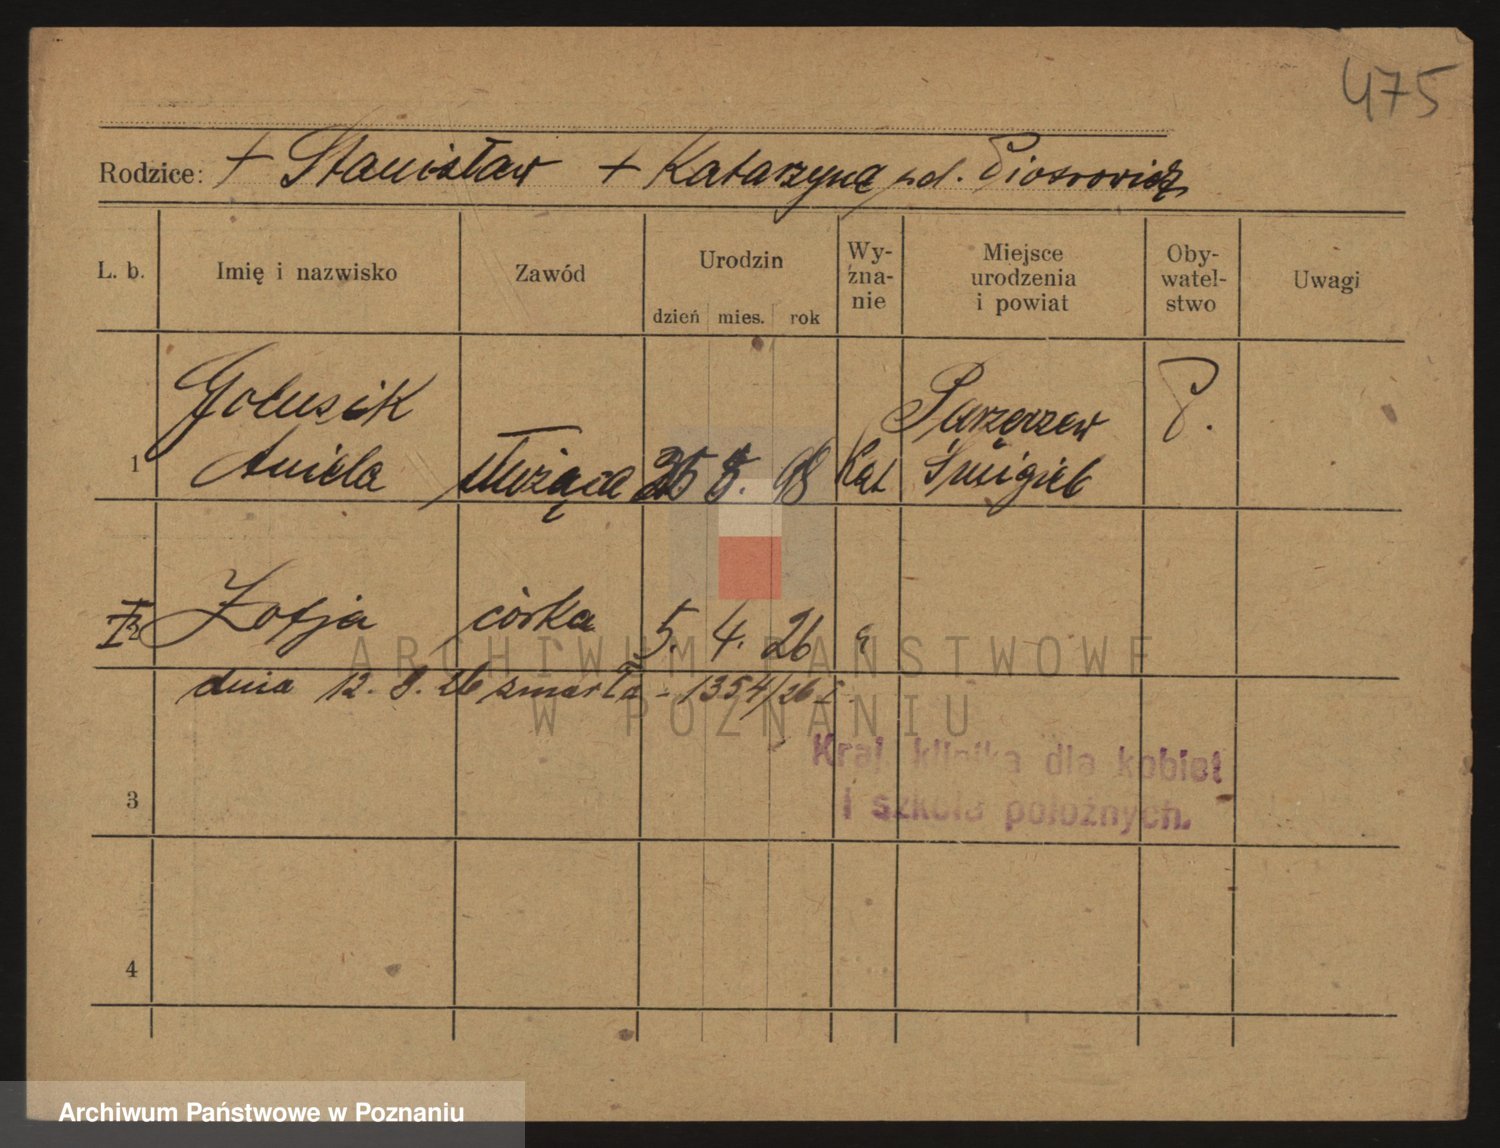 475
Rodzice: + Stanisław + Katarzyna
L. b. Imię i nazwisko Zawód Urodzin dzień mies. rok Wy-zna-nie Miejsce urodzenia i powiat Oby-watel-stwo Uwagi
Golusik Parzęczew P.
1 Aniela służąca 5. 98 Kat Śmigiel
2 Zofja córka 5. 4. 26
dnia 12. 8. 26 zmarła - 1354/26
ARCHIWUM PAŃSTWOWE
W POZNANIU
Kraj. klinika dla kobiet
i szkoła położnych.
3
4
Archiwum Państwowe w Poznaniu